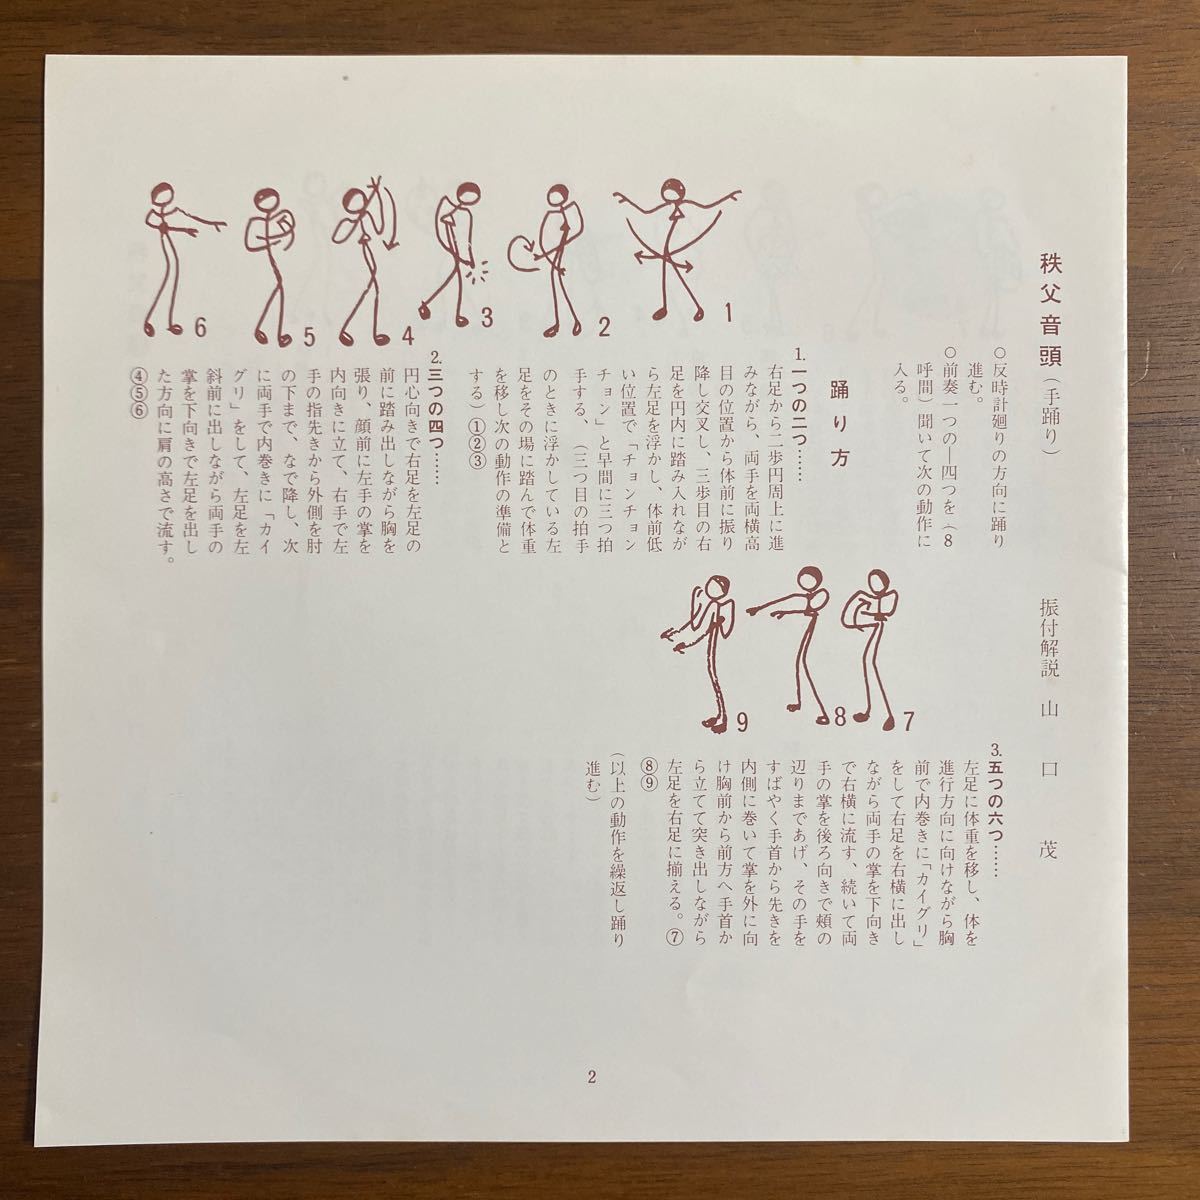 秩父音頭（手踊り）
振付解説　山口　茂
○反時計廻りの方向に踊り
進む。
○前奏一つの―四つを（8
呼間）聞いて次の動作に
入る。
踊り方
1.一つの二つ……
右足から二歩円周上に進
みながら、両手を両横高
目の位置から体前に振り
降し交叉し、三歩目の右
足を円内に踏み入れなが
ら左足を浮かし、体前低
い位置で「チョンチョン
チョン」と早間に三つ拍
手する、（三つ目の拍手
のときに浮かしている左
足をその場に踏んで体重
を移し次の動作の準備と
する）①②③
2.三つの四つ……
円心向きで右足を左足の
前に踏み出しながら胸を
張り、顔前に左手の掌を
内向きに立て、右手で左
手の指先きから外側を肘
の下まで、なで降し、次
に両手で内巻きに「カイ
グリ」をして、左足を左
斜前に出しながら両手の
掌を下向きで左足を出し
た方向に肩の高さで流す。
④⑤⑥
1
2
3
4
5
6
3.五つの六つ……
左足に体重を移し、体を
進行方向に向けながら胸
前で内巻きに「カイグリ」
をして右足を右横に出し
ながら両手の掌を下向き
で右横に流す、続いて両
手の掌を後ろ向きで頬の
辺りまであげ、その手を
すばやく手首から先きを
内側に巻いて掌を外に向
け胸前から前方へ手首か
ら立てて突き出しながら
左足を右足に揃える。⑦
⑧⑨
（以上の動作を繰返し踊り
進む）
7
8
9
2